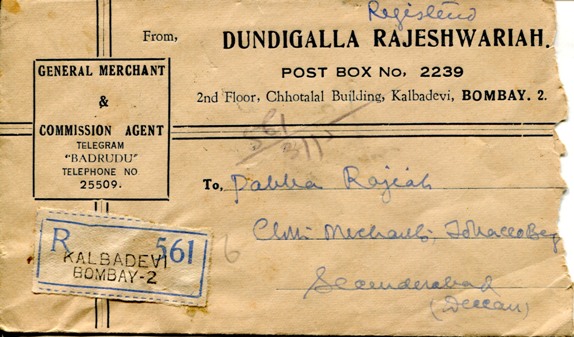 Registered
From,
DUNDIGALLA RAJESHWARIAH.
POST BOX No, 2239
2nd Floor, Chhotalal Building, Kalbadevi, BOMBAY. 2.
GENERAL MERCHANT
&
COMMISSION AGENT
TELEGRAM
"BADRUDU"
TELEPHONE NO
25509.
561
To, Pabba Rajiah
Cloth Merchants,
Secunderabad
(Deccan)
R 561
KALBADEVI
BOMBAY-2
6